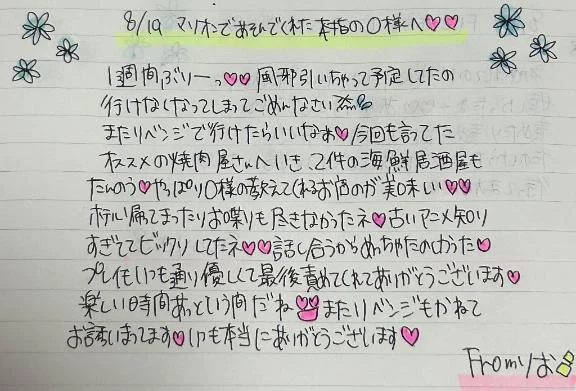 8/19 マリオンであそんでくれた本指の〇様へ♡♡
1週間ぶりーっ♡♡ 風邪引いちゃって予定してたの
行けなくなってしまってごめんなさい
またリベンジで行けたらいいなぁ♡今回も言ってた
オススメの焼肉屋さんへいき、2件の海鮮居酒屋も
たんのう♡やっぱり〇様の教えてくれるお店のが美味しい♡♡
ホテル帰てまったりお喋りも尽きなかったネ♡古いアニメ知り
すぎててビックリしてたネ♡♡話し合うからめっちゃたのしかうた♡
プレイもいつも通り優しくて最後責めてくれてありがとうございます♡
楽しい時間あっという間だね♡またリベンジもかねて
お誘いまってます♡いつも本当にありがとうございます♡
Fromりお